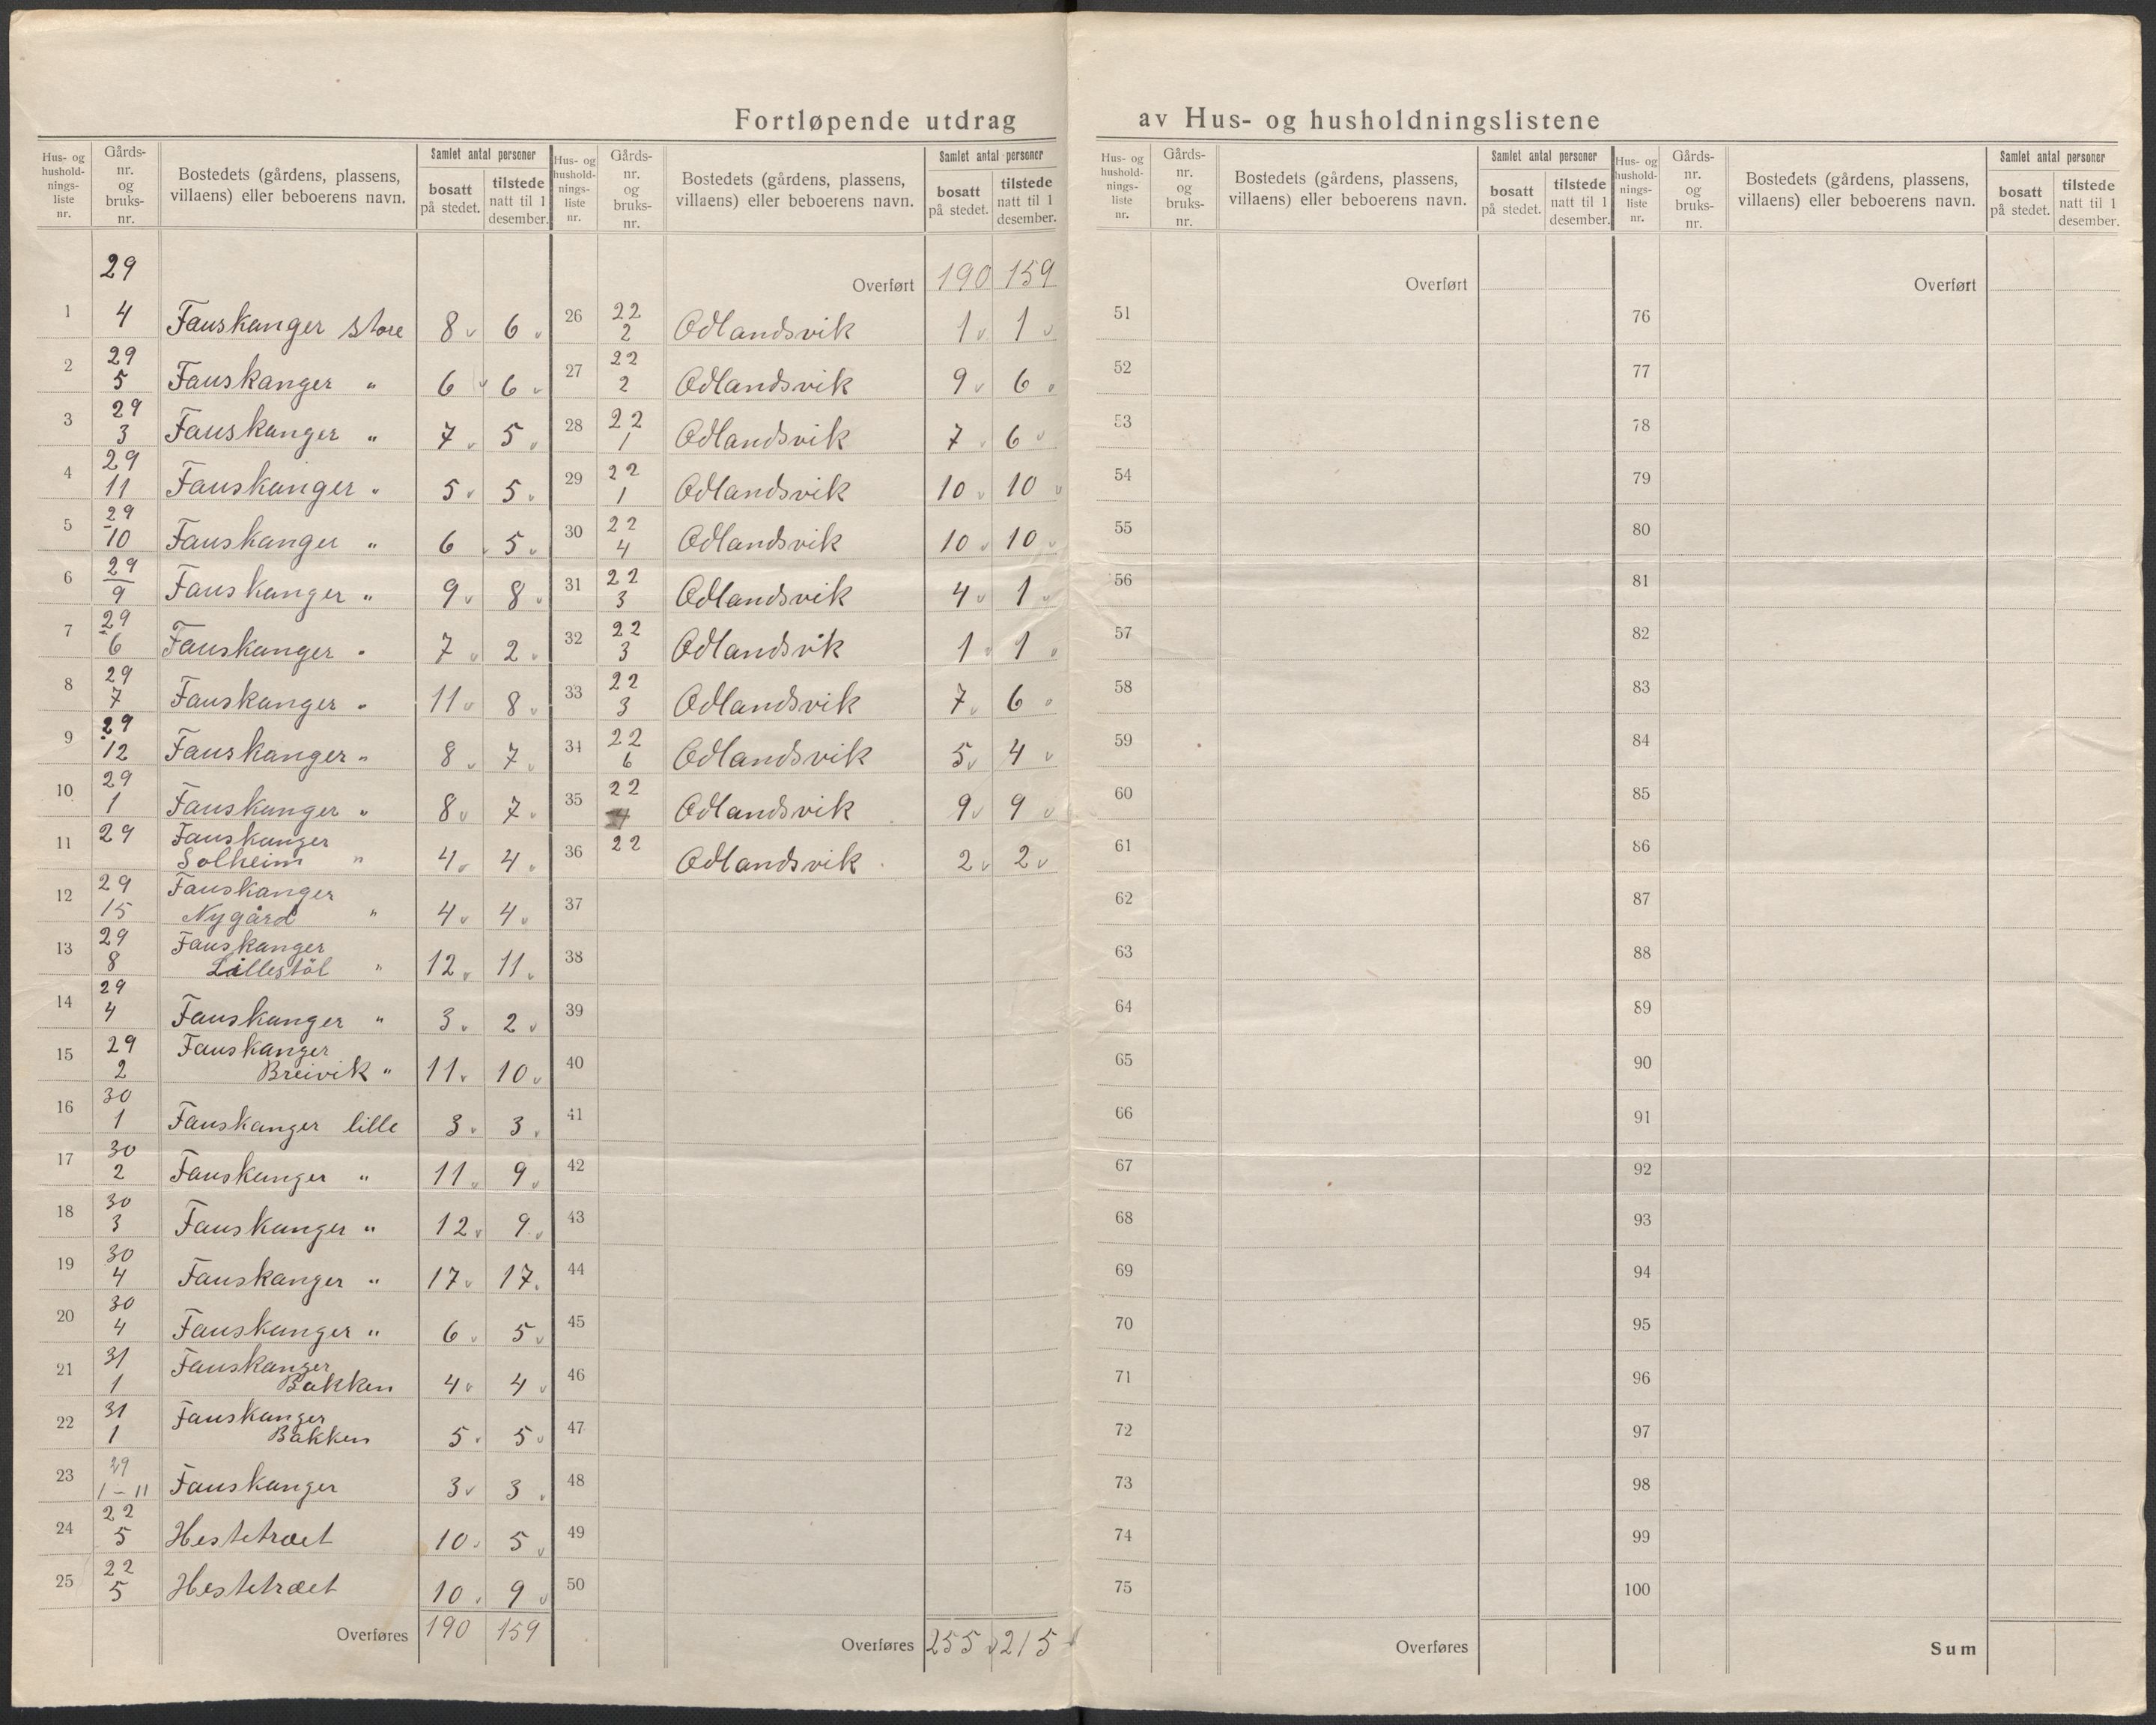 Fortløpende utdrag av Hus- og husholdningslistene
Hus- og husholdningsliste nr. | Gårds-nr. og bruks-nr. | Bostedets (gårdens, plassens, villaens) eller beboerens navn. | Samlet antal personer | bosatt på stedet. | tilstede natt til 1 desember.
1 | 29 4 | Fauskanger store | 8 | 6
2 | 29 5 | Fauskanger " | 6 | 6
3 | 29 3 | Fauskanger " | 7 | 5
4 | 29 11 | Fauskanger " | 5 | 5
5 | 29 10 | Fauskanger " | 6 | 5
6 | 29 9 | Fauskanger " | 9 | 8
7 | 29 6 | Fauskanger " | 7 | 2
8 | 29 7 | Fauskanger " | 11 | 8
9 | 29 12 | Fauskanger " | 8 | 7
10 | 29 1 | Fauskanger " | 8 | 7
11 | 29 | Fauskanger Solheim " | 4 | 4
12 | 29 15 | Fauskanger Nygård " | 4 | 4
13 | 29 8 | Fauskanger Lillestöl " | 12 | 11
14 | 29 4 | Fauskanger " | 3 | 2
15 | 29 2 | Fauskanger Breivik " | 11 | 10
16 | 30 1 | Fauskanger lille | 3 | 3
17 | 30 2 | Fauskanger " | 11 | 9
18 | 30 3 | Fauskanger " | 12 | 9
19 | 30 4 | Fauskanger " | 17 | 17
20 | 30 4 | Fauskanger " | 6 | 5
21 | 31 1 | Fauskanger Bakken | 4 | 4
22 | 31 1 | Fauskanger Bakken | 5 | 5
23 | 29 1-11 | Fauskanger | 3 | 3
24 | 22 5 | Hestetræet | 10 | 5
25 | 22 5 | Hestetræet | 10 | 9
Overføres | 190 | 159
Hus- og husholdningsliste nr. | Gårds-nr. og bruks-nr. | Bostedets (gårdens, plassens, villaens) eller beboerens navn. | Samlet antal personer | bosatt på stedet. | tilstede natt til 1 desember.
Overført | 190 | 159
26 | 22 2 | Odlandsvik | 1 | 1
27 | 22 2 | Odlandsvik | 9 | 6
28 | 22 1 | Odlandsvik | 7 | 6
29 | 22 1 | Odlandsvik | 10 | 10
30 | 22 4 | Odlandsvik | 10 | 10
31 | 22 3 | Odlandsvik | 4 | 1
32 | 22 3 | Odlandsvik | 1 | 1
33 | 22 3 | Odlandsvik | 7 | 6
34 | 22 6 | Odlandsvik | 5 | 4
35 | 22 | Odlandsvik | 9 | 9
36 | 22 | Odlandsvik | 2 | 2
37
38
39
40
41
42
43
44
45
46
47
48
49
50
Overføres | 255 | 215
Hus- og husholdningsliste nr. | Gårds-nr. og bruks-nr. | Bostedets (gårdens, plassens, villaens) eller beboerens navn. | Samlet antal personer | bosatt på stedet. | tilstede natt til 1 desember.
Overført
51
52
53
54
55
56
57
58
59
60
61
62
63
64
65
66
67
68
69
70
71
72
73
74
75
Overføres
Hus- og husholdningsliste nr. | Gårds-nr. og bruks-nr. | Bostedets (gårdens, plassens, villaens) eller beboerens navn. | Samlet antal personer | bosatt på stedet. | tilstede natt til 1 desember.
Overført
76
77
78
79
80
81
82
83
84
85
86
87
88
89
90
91
92
93
94
95
96
97
98
99
100
Sum